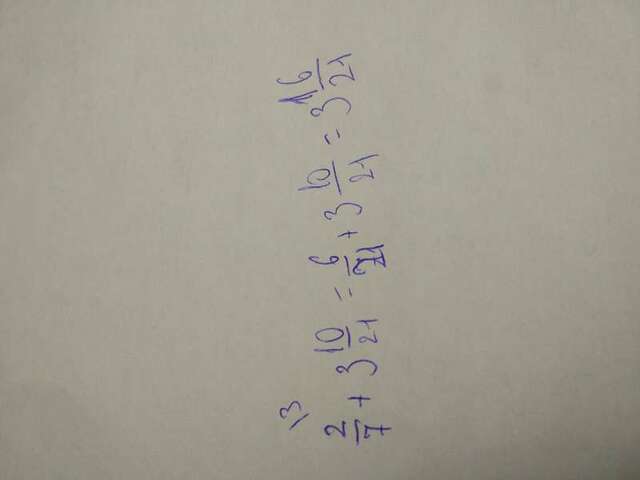 2/7 \3 + 3 10/21 = 6/21 + 3 10/21 = 3 16/21